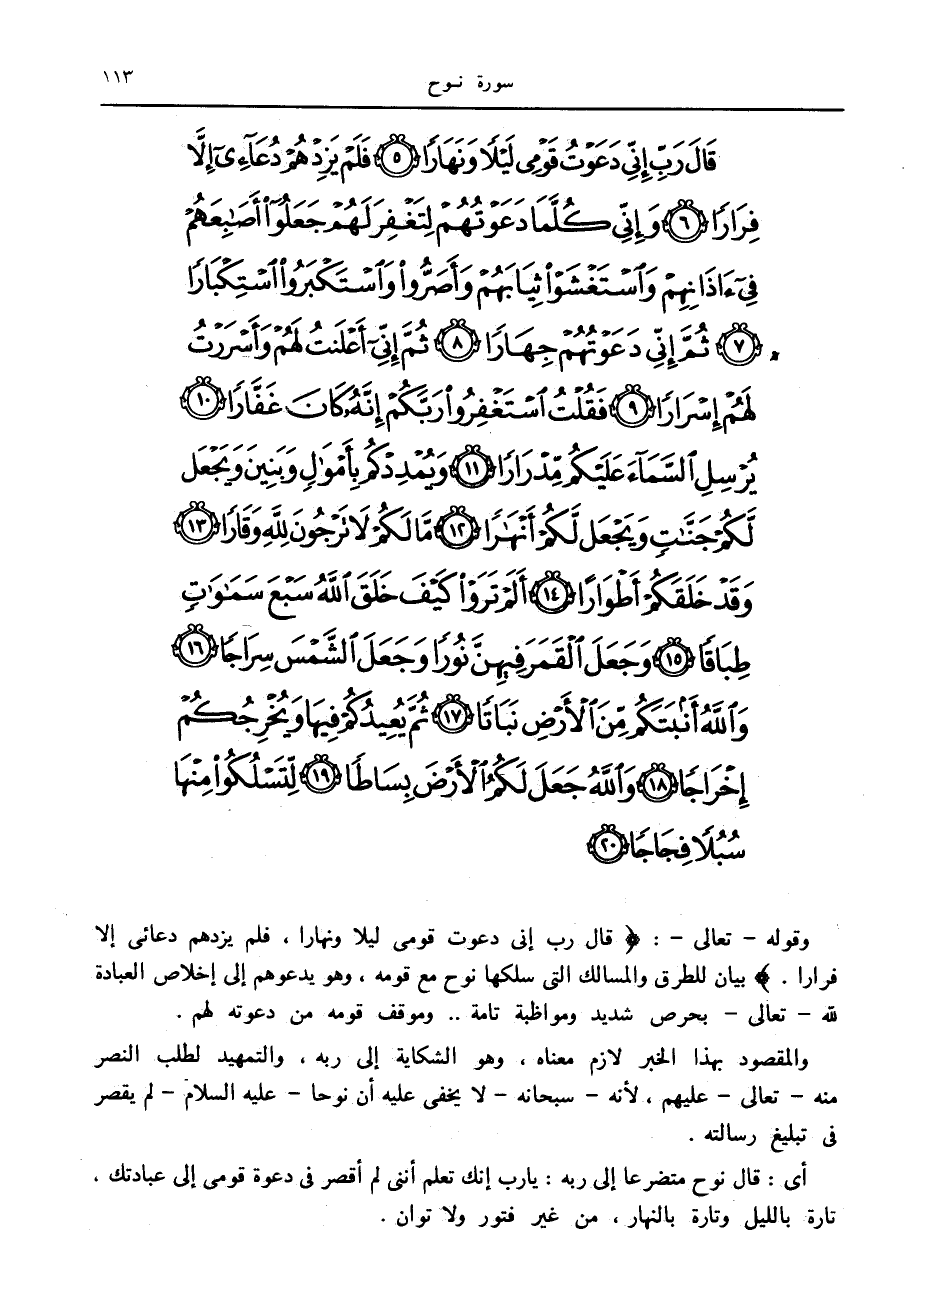 سورة نوح ١١٣
قَالَ رَبِّ إِنِّي دَعَوْتُ قَوْمِي لَيْلًا وَنَهَارًا ۝٥ فَلَمْ يَزِدْهُمْ دُعَآءِىٓ إِلَّا
فِرَارًا ۝٦ وَإِنِّي كُلَّمَا دَعَوْتُهُمْ لِتَغْفِرَ لَهُمْ جَعَلُوٓا۟ أَصَٰبِعَهُمْ
فِىٓ ءَاذَانِهِمْ وَٱسْتَغْشَوْا۟ ثِيَابَهُمْ وَأَصَرُّوا۟ وَٱسْتَكْبَرُوا۟ ٱسْتِكْبَارًا
۝٧ ثُمَّ إِنِّي دَعَوْتُهُمْ جِهَارًا ۝٨ ثُمَّ إِنِّىٓ أَعْلَنتُ لَهُمْ وَأَسْرَرْتُ
لَهُمْ إِسْرَارًا ۝٩ فَقُلْتُ ٱسْتَغْفِرُوا۟ رَبَّكُمْ إِنَّهُۥ كَانَ غَفَّارًا ۝١٠
يُرْسِلِ ٱلسَّمَآءَ عَلَيْكُم مِّدْرَارًا ۝١١ وَيُمْدِدْكُم بِأَمْوَٰلٍ وَبَنِينَ وَيَجْعَل
لَّكُمْ جَنَّٰتٍ وَيَجْعَل لَّكُمْ أَنْهَٰرًا ۝١٢ مَّا لَكُمْ لَا تَرْجُونَ لِلَّهِ وَقَارًا ۝١٣
وَقَدْ خَلَقَكُمْ أَطْوَارًا ۝١٤ أَلَمْ تَرَوْا۟ كَيْفَ خَلَقَ ٱللَّهُ سَبْعَ سَمَٰوَٰتٍ
طِبَاقًا ۝١٥ وَجَعَلَ ٱلْقَمَرَ فِيهِنَّ نُورًا وَجَعَلَ ٱلشَّمْسَ سِرَاجًا ۝١٦
وَٱللَّهُ أَنۢبَتَكُم مِّنَ ٱلْأَرْضِ نَبَاتًا ۝١٧ ثُمَّ يُعِيدُكُمْ فِيهَا وَيُخْرِجُكُمْ
إِخْرَاجًا ۝١٨ وَٱللَّهُ جَعَلَ لَكُمُ ٱلْأَرْضَ بِسَاطًا ۝١٩ لِّتَسْلُكُوا۟ مِنْهَا
سُبُلًا فِجَاجًا ۝٢٠
وقوله – تعالى – : ﴿ قال رب إنى دعوت قومى ليلا ونهارا ، فلم يزدهم دعائى إلا
فرارا . ﴾ بيان للطرق والمسالك التى سلكها نوح مع قومه ، وهو يدعوهم إلى إخلاص العبادة
لله – تعالى – بحرص شديد ومواظبة تامة .. وموقف قومه من دعوته لهم .
والمقصود بهذا الخبر لازم معناه ، وهو الشكاية إلى ربه ، والتمهيد لطلب النصر
منه – تعالى – عليهم ، لأنه – سبحانه – لا يخفى عليه أن نوحا – عليه السلام – لم يقصر
فى تبليغ رسالته .
أى : قال نوح متضرعا إلى ربه : يارب إنك تعلم أننى لم أقصر فى دعوة قومى إلى عبادتك ،
تارة بالليل وتارة بالنهار ، من غير فتور ولا توان .